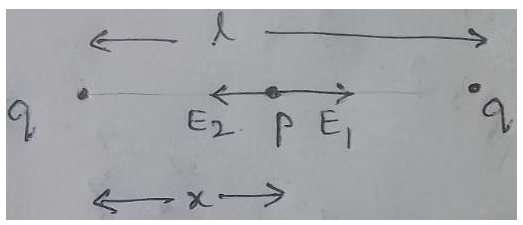 l
q E₂ P E₁ q
x